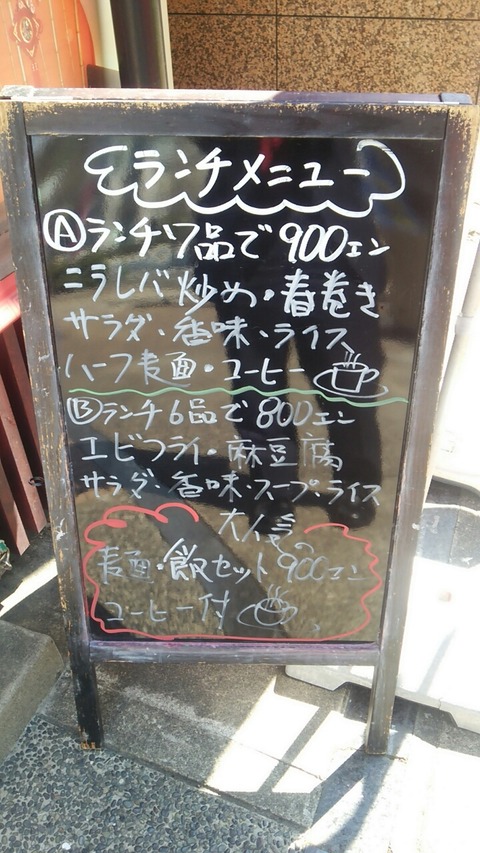 ランチメニュー
Ⓐランチ7品で900エン
ニラレバ炒め・春巻き
サラダ・香味・ライス
ハーフ麺・コーヒー
Ⓑランチ6品で800エン
エビフライ・麻豆腐
サラダ・香味・スープ・ライス
大人気
麺・飯セット900エン
コーヒー付